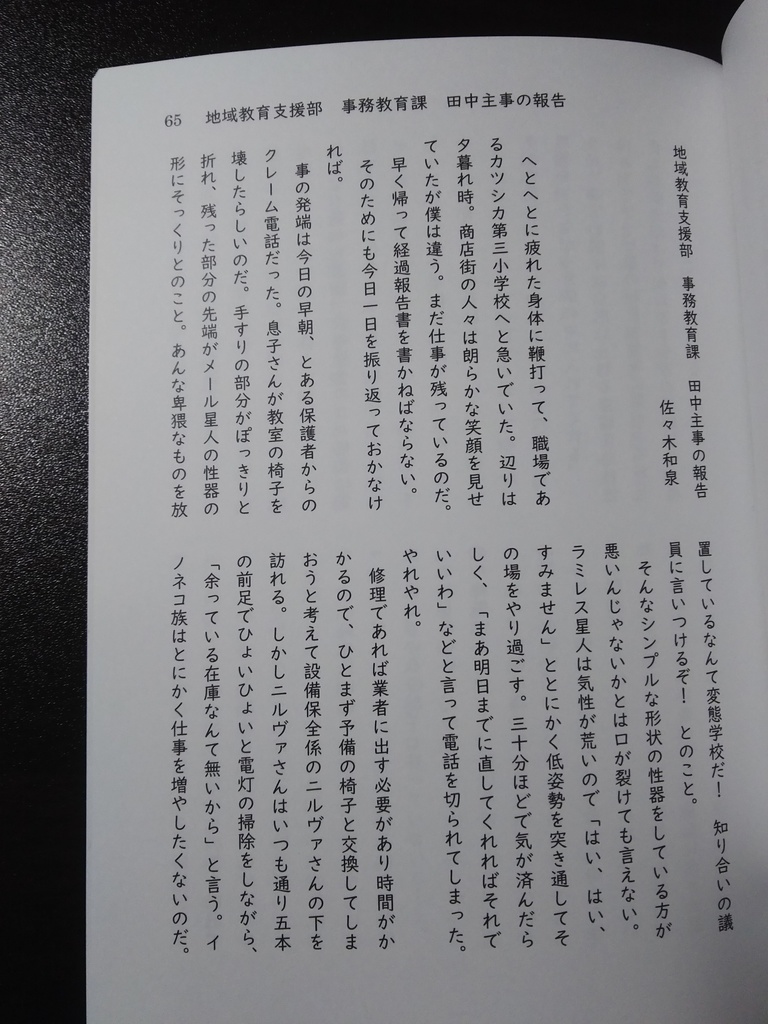 65 地域教育支援部 事務教育課 田中主事の報告
地域教育支援部 事務教育課 田中主事の報告
佐々木和泉
へとへとに疲れた身体に鞭打って、職場であ
るカツシカ第三小学校へと急いでいた。辺りは
夕暮れ時。商店街の人々は朗らかな笑顔を見せ
ていたが僕は違う。まだ仕事が残っているのだ。
早く帰って経過報告書を書かねばならない。
そのためにも今日一日を振り返っておかなけ
れば。
事の発端は今日の早朝、とある保護者からの
クレーム電話だった。息子さんが教室の椅子を
壊したらしいのだ。手すりの部分がぽっきりと
折れ、残った部分の先端がメール星人の性器の
形にそっくりとのこと。あんな卑猥なものを放
置しているなんて変態学校だ！ 知り合いの議
員に言いつけるぞ！ とのこと。
そんなシンプルな形状の性器をしている方が
悪いんじゃないかとは口が裂けても言えない。
ラミレス星人は気性が荒いので「はい、はい、
すみません」ととにかく低姿勢を突き通してそ
の場をやり過ごす。三十分ほどで気が済んだら
しく、「まあ明日までに直してくれればそれで
いいわ」などと言って電話を切られてしまった。
やれやれ。
修理であれば業者に出す必要があり時間がか
かるので、ひとまず予備の椅子と交換してしま
おうと考えて設備保全係のニルヴァさんの下を
訪れる。しかしニルヴァさんはいつも通り五本
の前足でひょいひょいと電灯の掃除をしながら、
「余っている在庫なんて無いから」と言う。イ
ノネコ族はとにかく仕事を増やしたくないのだ。